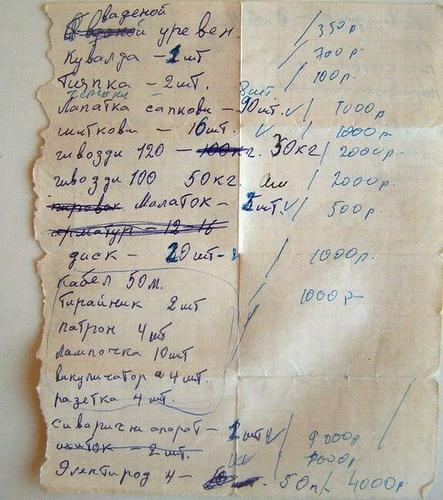 ваденой
уревен. / 350р
Кувалда - 1шт / 700р-
Тияпка - 2шт. / 100р.
Лапатка сапкови - 90шт. √ / 1000р
8шт
шиткови - 16шт. √ / 1000р
гивозди 120 - 100кг. 30кг / 2000р
гивозди 100 50кг. / 2000р
Малаток - 2шт. √ / 500р
арматур - 12-16
диск - 20шт- √ / 1000р
кабел 50м.
тирайник 2шт / 1000р
патрон 4шт
лампочка 10шт
викулчатор а 4шт.
разетка 4шт.
сиваричи апорат - 1шт √ / 9000р
щиток - 2шт. 1000р
Электирод 4 - 50п / 4000р